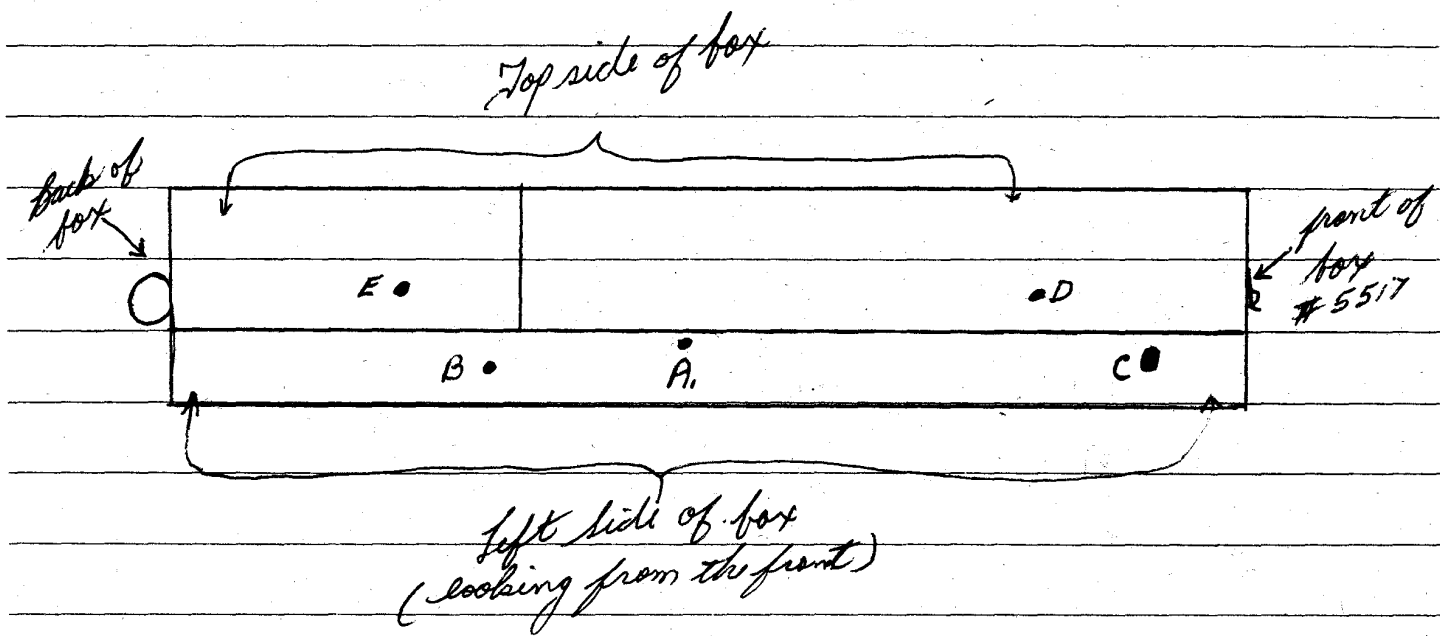 Top side of box
Back of
box
front of
box
#5517
E
D
B
A.
C
Left side of box
(looking from the front)